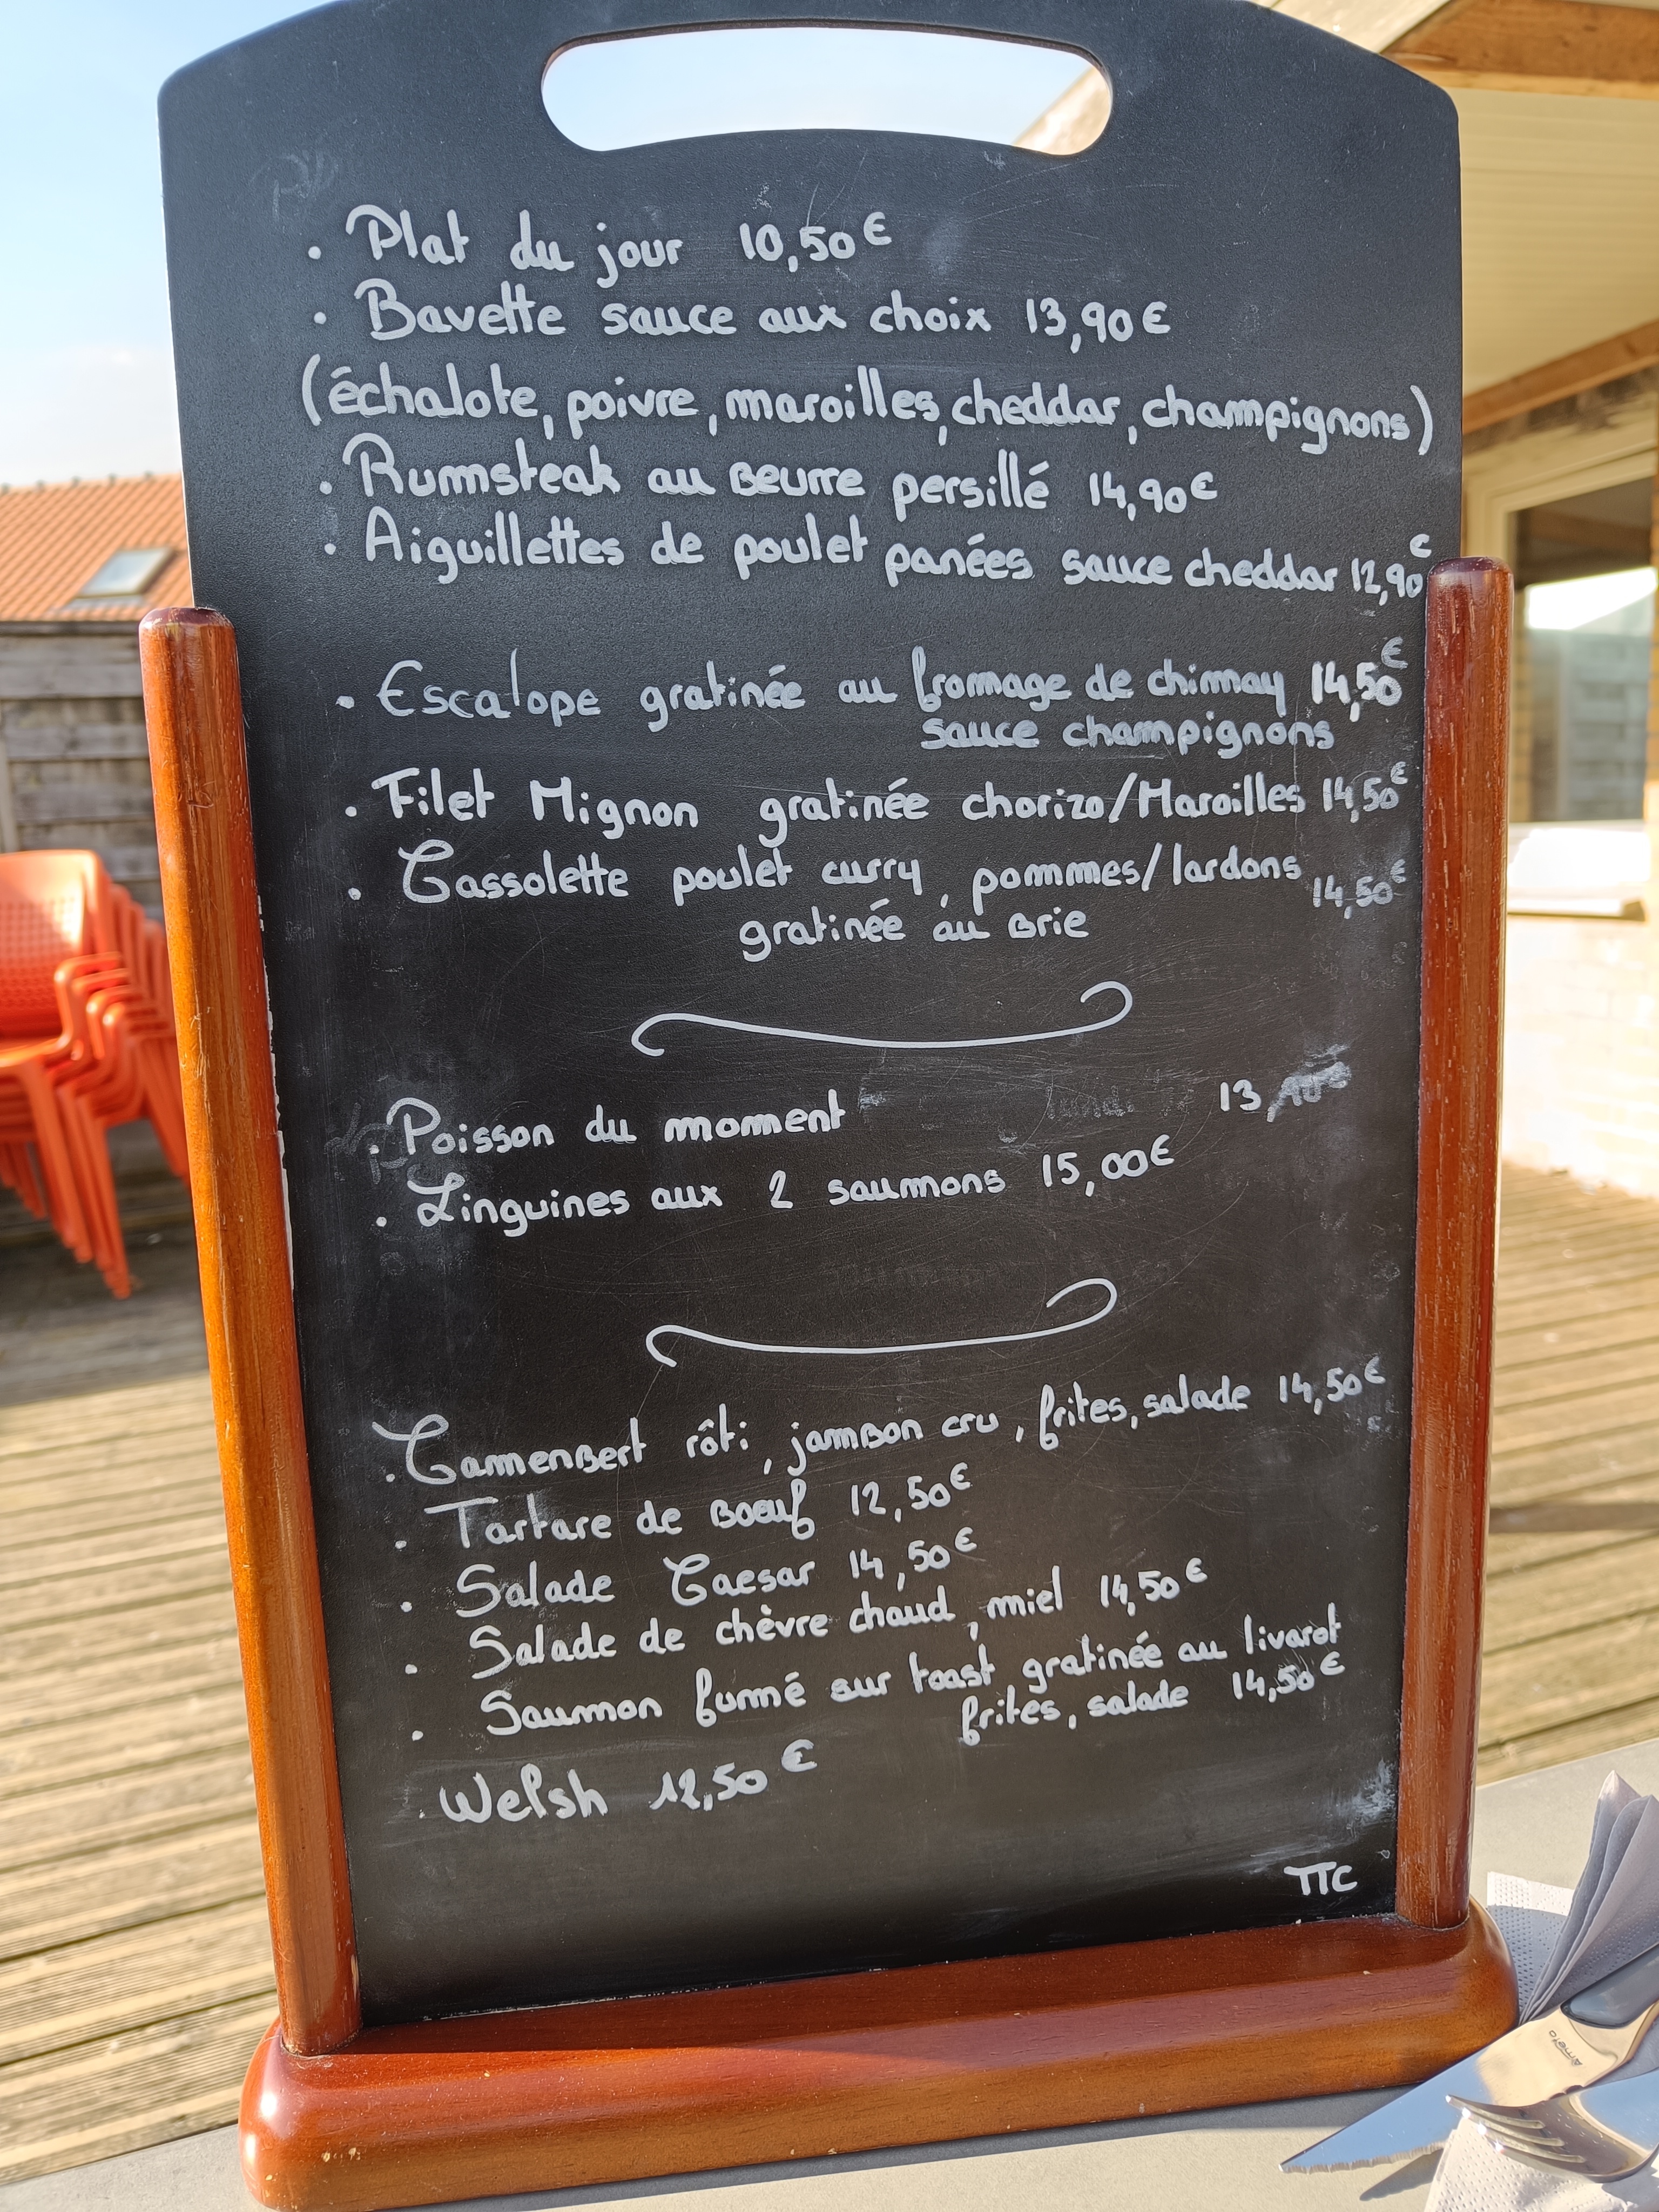 . Plat du jour 10,50€
. Bavette sauce aux choix 13,90€
(échalote, poivre, maroilles, cheddar, champignons)
. Rumsteak au beurre persillé 14,90€
. Aiguillettes de poulet panées sauce cheddar 12,90€
. Escalope gratinée au fromage de chimay 14,50€
sauce champignons
. Filet Mignon gratinée chorizo/Maroilles 14,50€
. Cassolette poulet curry, pommes/lardons 14,50€
gratinée au brie
. Poisson du moment 13,
. Linguines aux 2 saumons 15,00€
. Camembert rôti, jambon cru, frites, salade 14,50€
. Tartare de boeuf 12,50€
. Salade Caesar 14,50€
. Salade de chèvre chaud, miel 14,50€
. Saumon fumé sur toast gratinée au livarot
frites, salade 14,50€
. Welsh 12,50€
TTC